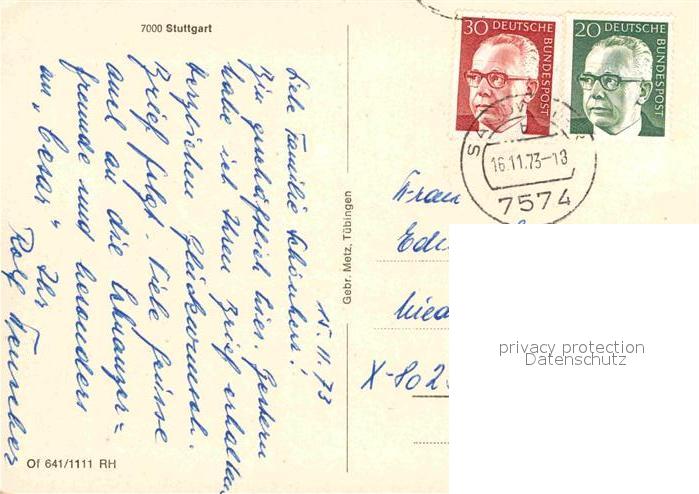 7000 Stuttgart
15.11.73
Liebe Familie Schönherr!
Bin geschäftlich hier. Gestern
habe ich Ihren Brief erhalten,
herzlichen Glückwunsch.
Brief folgt. Viele Grüsse
auch an die
freunde und besonders
an „Cesar“ Ihr
Rolf
Of 641/1111 RH
Gebr. Metz, Tübingen
30 DEUTSCHE BUNDESPOST
20 DEUTSCHE BUNDESPOST
16.11.73-18
7574
Frau
X-802
privacy protection
Datenschutz